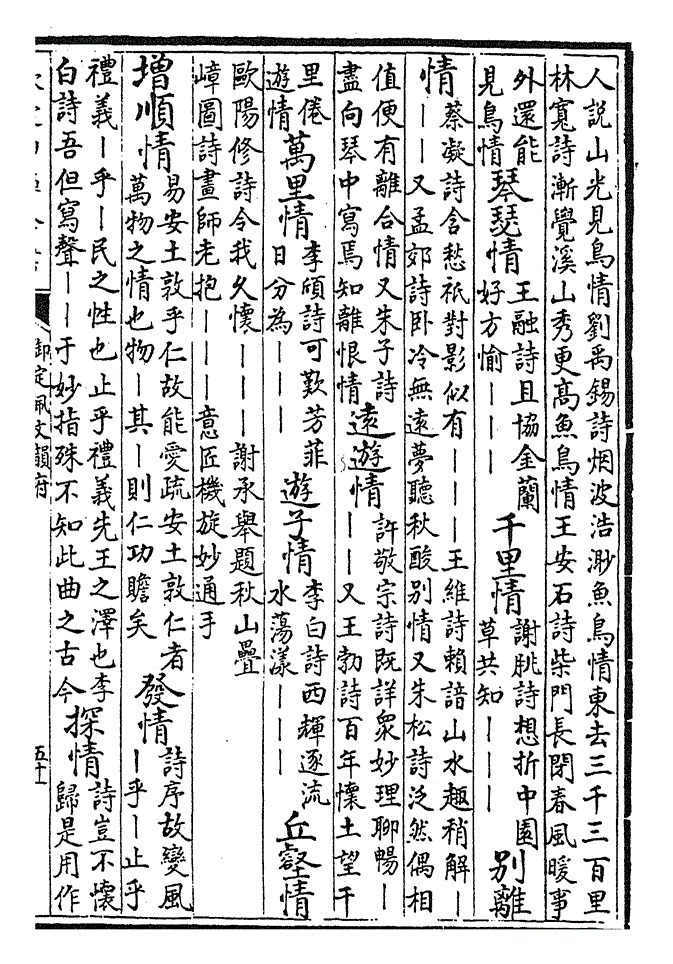 人說山光見鳥情劉禹錫詩烟波浩渺魚鳥情東去三千三百里
林寬詩漸覺溪山秀更髙魚鳥情王安石詩柴門長閉春風暖事
外還能
見鳥情
琴瑟情
王融詩且協金蘭
好方愉｜｜｜
千里情
謝朓詩想折中園
草共知｜｜｜
別離
情
蔡凝詩含愁祇對影似有｜｜｜王維詩賴諳山水趣稍解｜
｜｜又孟郊詩卧冷無遠夢聽秋酸別情又朱松詩泛然偶相
值便有離合情又朱子詩
盡向琴中寫焉知離恨情
遠遊情
許敬宗詩既詳衆妙理聊暢｜
｜｜又王勃詩百年懷土望千
里倦
遊情
萬里情
李頎詩可歎芳菲
日分為｜｜｜
遊子情
李白詩西輝逐流
水蕩漾｜｜｜
丘壑情
歐陽修詩令我久懷｜｜｜謝承舉題秋山疊
嶂圖詩畫師老抱｜｜｜意匠機旋妙通手
增順情
易安土敦乎仁故能愛疏安土敦仁者
萬物之情也物｜其｜則仁功贍矣
發情
詩序故變風
｜乎｜止乎
禮義｜乎｜民之性也止乎禮義先王之澤也李
白詩吾但寫聲｜｜于妙指殊不知此曲之古今
探情
詩豈不懷
歸是用作
御定佩文韻府